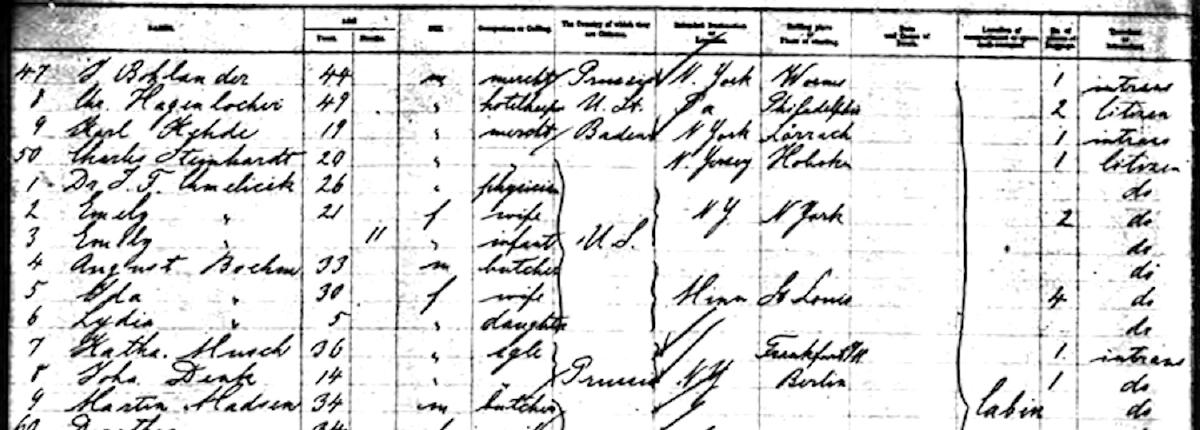 NAMES. AGE Years. Months. SEX Occupation or Calling. The Country of which they are Citizens. Intended Destination or Location. Starting place or Place of starting. Date and Cause of Death. Location of No. of
47 J Bohlander 44 m mercht Prussia N. York Worms 1 intrans
8 Chr. Hagenlocher 49 " hotelkeep U. St. Pa Philadelphia 2 Citizen
9 Karl 19 " mercht Baden N York Lörrach 1 intrans
50 Charles Steinhardt 20 " N. Jersey Hoboken 1 Citizen
1 Dr. J. F. 26 " physician do
2 Emely " 21 f wife N Y. N York 2 do
3 Emely " 11 " infant U. S. do
4 August Boehm 33 m butcher do
5 " 30 f wife Minn St Louis 4 do
6 Lydia " 5 " daughter do
7 Katha. Musch 36 " sgle Frankfurt 1 intrans
8 Joha Denk 14 " " Prussia N Y Berlin 1 do
9 Martin Madsen 34 m butcher Cabin do
60